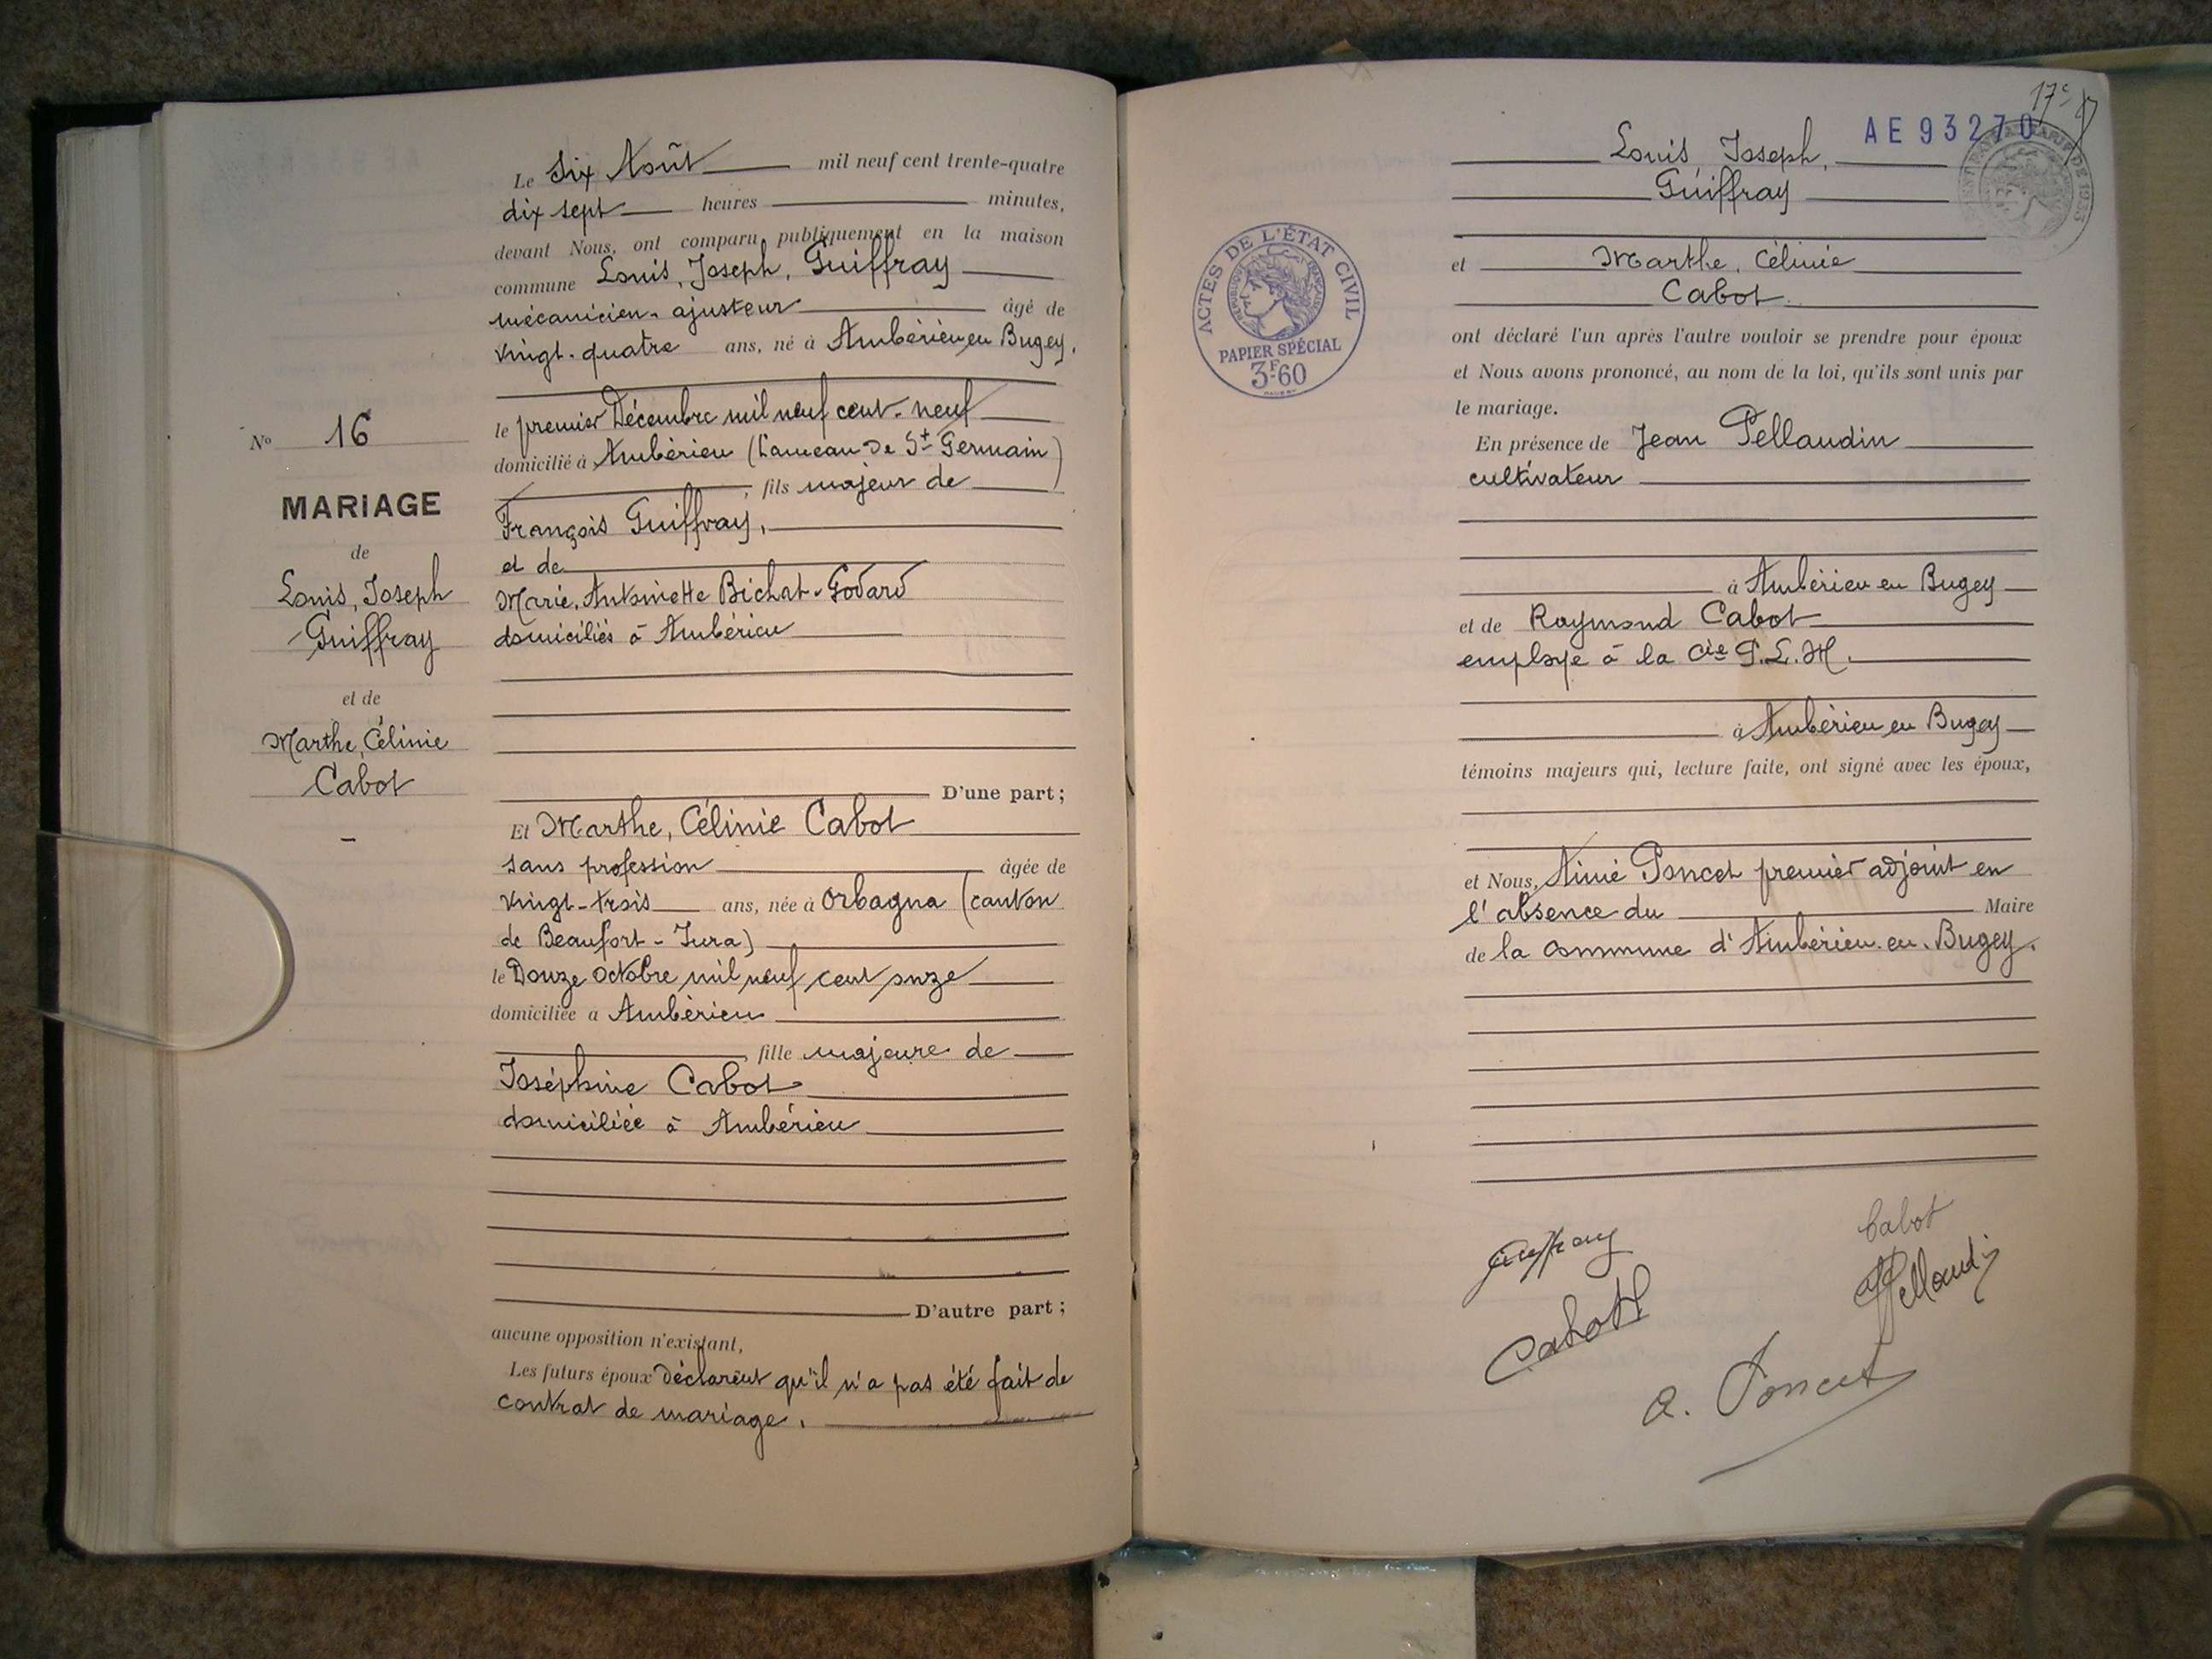 N° 16
MARIAGE
de
Louis, Joseph
Guiffray
et de
Marthe, Célinie
Cabot
Le Six Août mil neuf cent trente-quatre
dix sept heures minutes,
devant Nous, ont comparu publiquement en la maison
commune Louis, Joseph, Guiffray
mécanicien-ajusteur âgé de
vingt-quatre ans, né à Ambérieu en Bugey,
le premier Décembre mil neuf cent-neuf
domicilié à Ambérieu (hameau de St Germain)
, fils majeur de
François Guiffray,
et de
Marie, Antoinette Bichat-Godard
domiciliés à Ambérieu
D'une part;
Et Marthe, Célinie Cabot
sans profession âgée de
vingt-trois ans, née à Orbagna (canton
de Beaufort-Jura)
le Douze octobre mil neuf cent onze
domiciliée à Ambérieu
, fille majeure de
Joséphine Cabot
domiciliée à Ambérieu
D'autre part;
aucune opposition n'existant,
Les futurs époux déclarent qu'il n'a pas été fait de
contrat de mariage.
17e
AE 93270
ACTES DE L'ÉTAT CIVIL
RÉPUBLIQUE FRANÇAISE
PAPIER SPÉCIAL
3F60
Louis, Joseph,
Guiffray
et Marthe, Célinie
Cabot
ont déclaré l'un après l'autre vouloir se prendre pour époux
et Nous avons prononcé, au nom de la loi, qu'ils sont unis par
le mariage.
En présence de Jean Pellaudin
cultivateur
à Ambérieu en Bugey
et de Raymond Cabot
employe à la Cie P.L.M.
à Ambérieu en Bugey
témoins majeurs qui, lecture faite, ont signé avec les époux,
et Nous, Aimé Poncet premier adjoint en
l'absence du Maire
de la commune d'Ambérieu-en-Bugey.
Guiffray
Cabot
Cabot
Pellaudin
a. Poncet